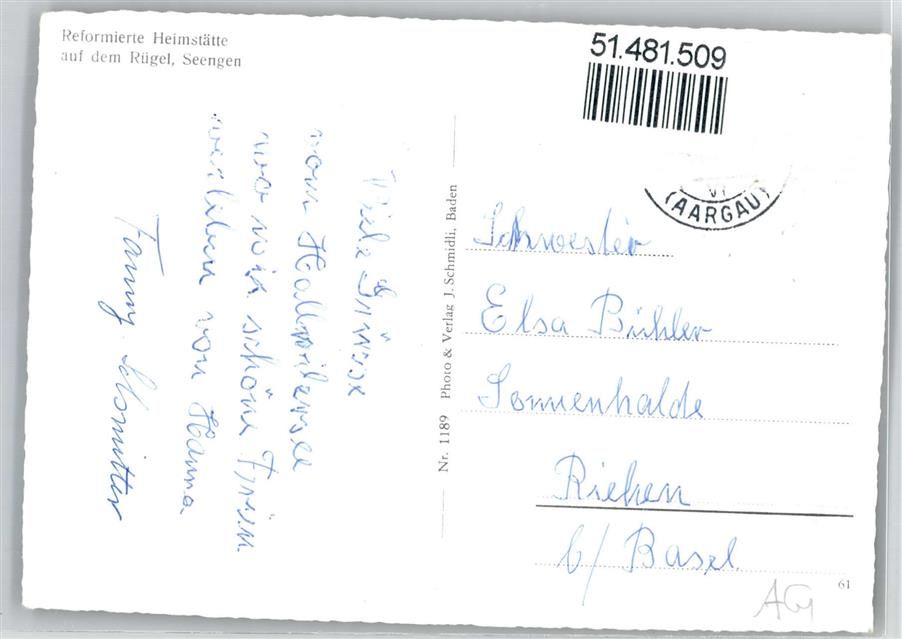 Reformierte Heimstätte
auf dem Rügel, Seengen
51.481.509
(AARGAU)
Viele Grüsse
vom Hallwilersee
wo wir schöne Ferien
verleben von Hanna
Fanny
Nr. 1189 Photo & Verlag J. Schmidli, Baden
Schwester
Elsa Bühler
Sonnenhalde
Riehen
b/ Basel
61
AG